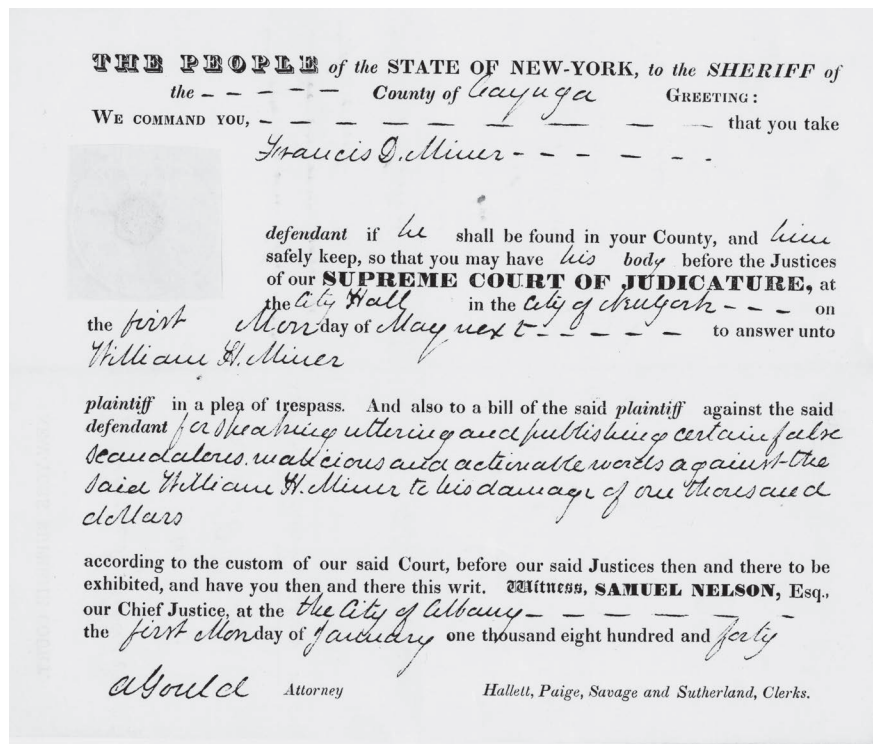 THE PEOPLE of the STATE OF NEW-YORK, to the SHERIFF of
the - - - - - County of Cayuga GREETING:
WE COMMAND YOU, - - - - - - - - - that you take
Francis D. Miner - - - - - -
defendant if he shall be found in your County, and him
safely keep, so that you may have his body before the Justices
of our SUPREME COURT OF JUDICATURE, at
the City Hall in the City of New York - - - on
the first Monday of May next - - - - - - to answer unto
William H. Miner
plaintiff in a plea of trespass. And also to a bill of the said plaintiff against the said
defendant for speaking uttering and publishing certain false
scandalous, malicious and actionable words against the
said William H. Miner to his damage of one thousand
dollars
according to the custom of our said Court, before our said Justices then and there to be
exhibited, and have you then and there this writ. Witness, SAMUEL NELSON, Esq.,
our Chief Justice, at the the City of Albany - - - - - -
the first Monday of January one thousand eight hundred and forty
A Gould Attorney Hallett, Paige, Savage and Sutherland, Clerks.